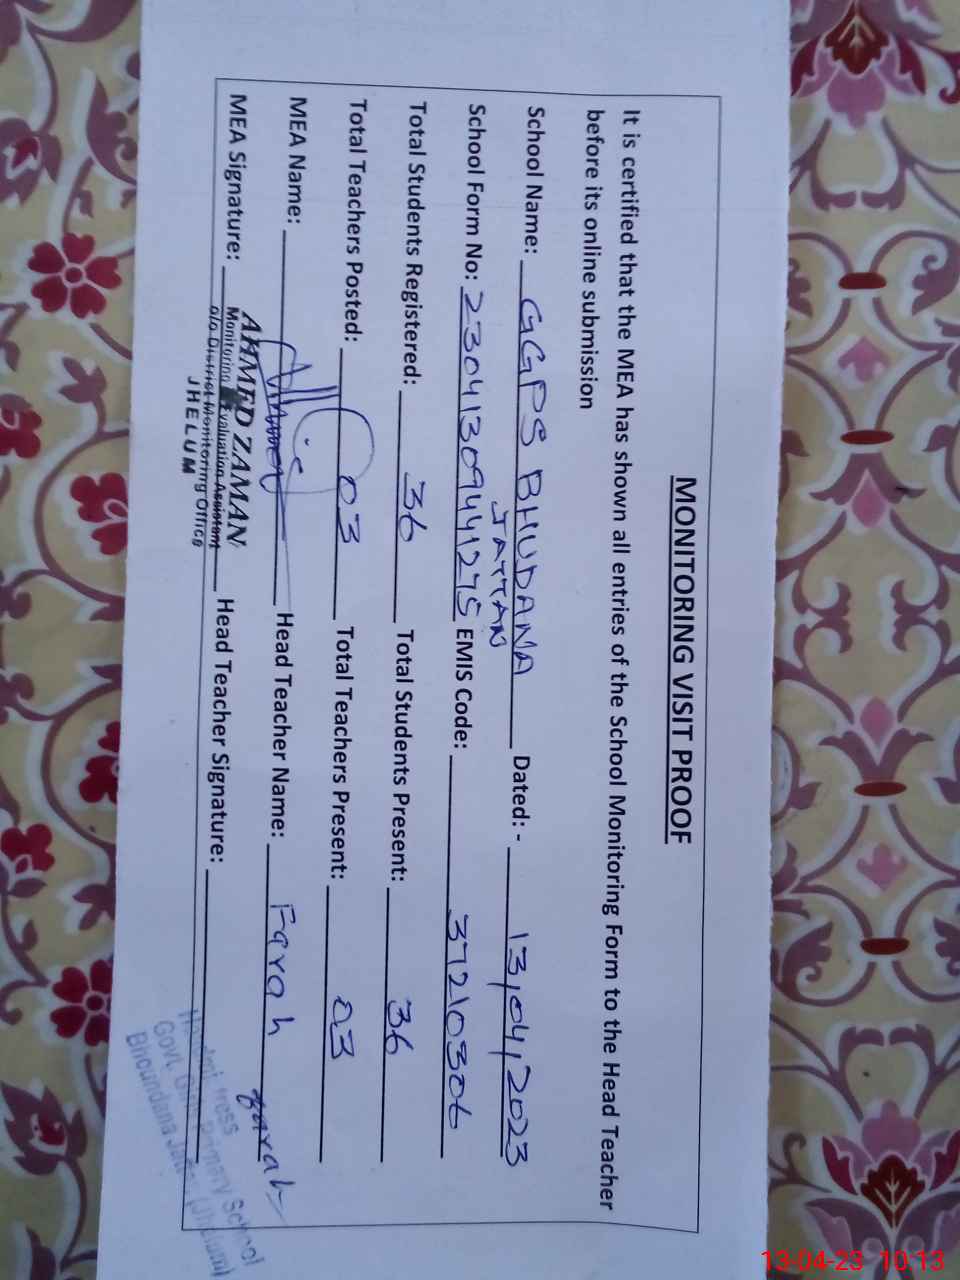 MONITORING VISIT PROOF
It is certified that the MEA has shown all entries of the School Monitoring Form to the Head Teacher
before its online submission
School Name: GGPS BHUDANA Dated: - 13,04,2023
JATTAN
School Form No: 23041309441275 EMIS Code: 37210306
Total Students Registered: 36 Total Students Present: 36
Total Teachers Posted: 03 Total Teachers Present: 03
MEA Name: Head Teacher Name: Farah
MEA Signature: Head Teacher Signature: farah
AHMED ZAMAN
Monitoring Evaluation Assistant
o/o District Monitoring Office
JHELUM
Headmistress
Govt. Girls Primary School
Bhoundana Jattan (Jhelum)
13-04-23 10:13